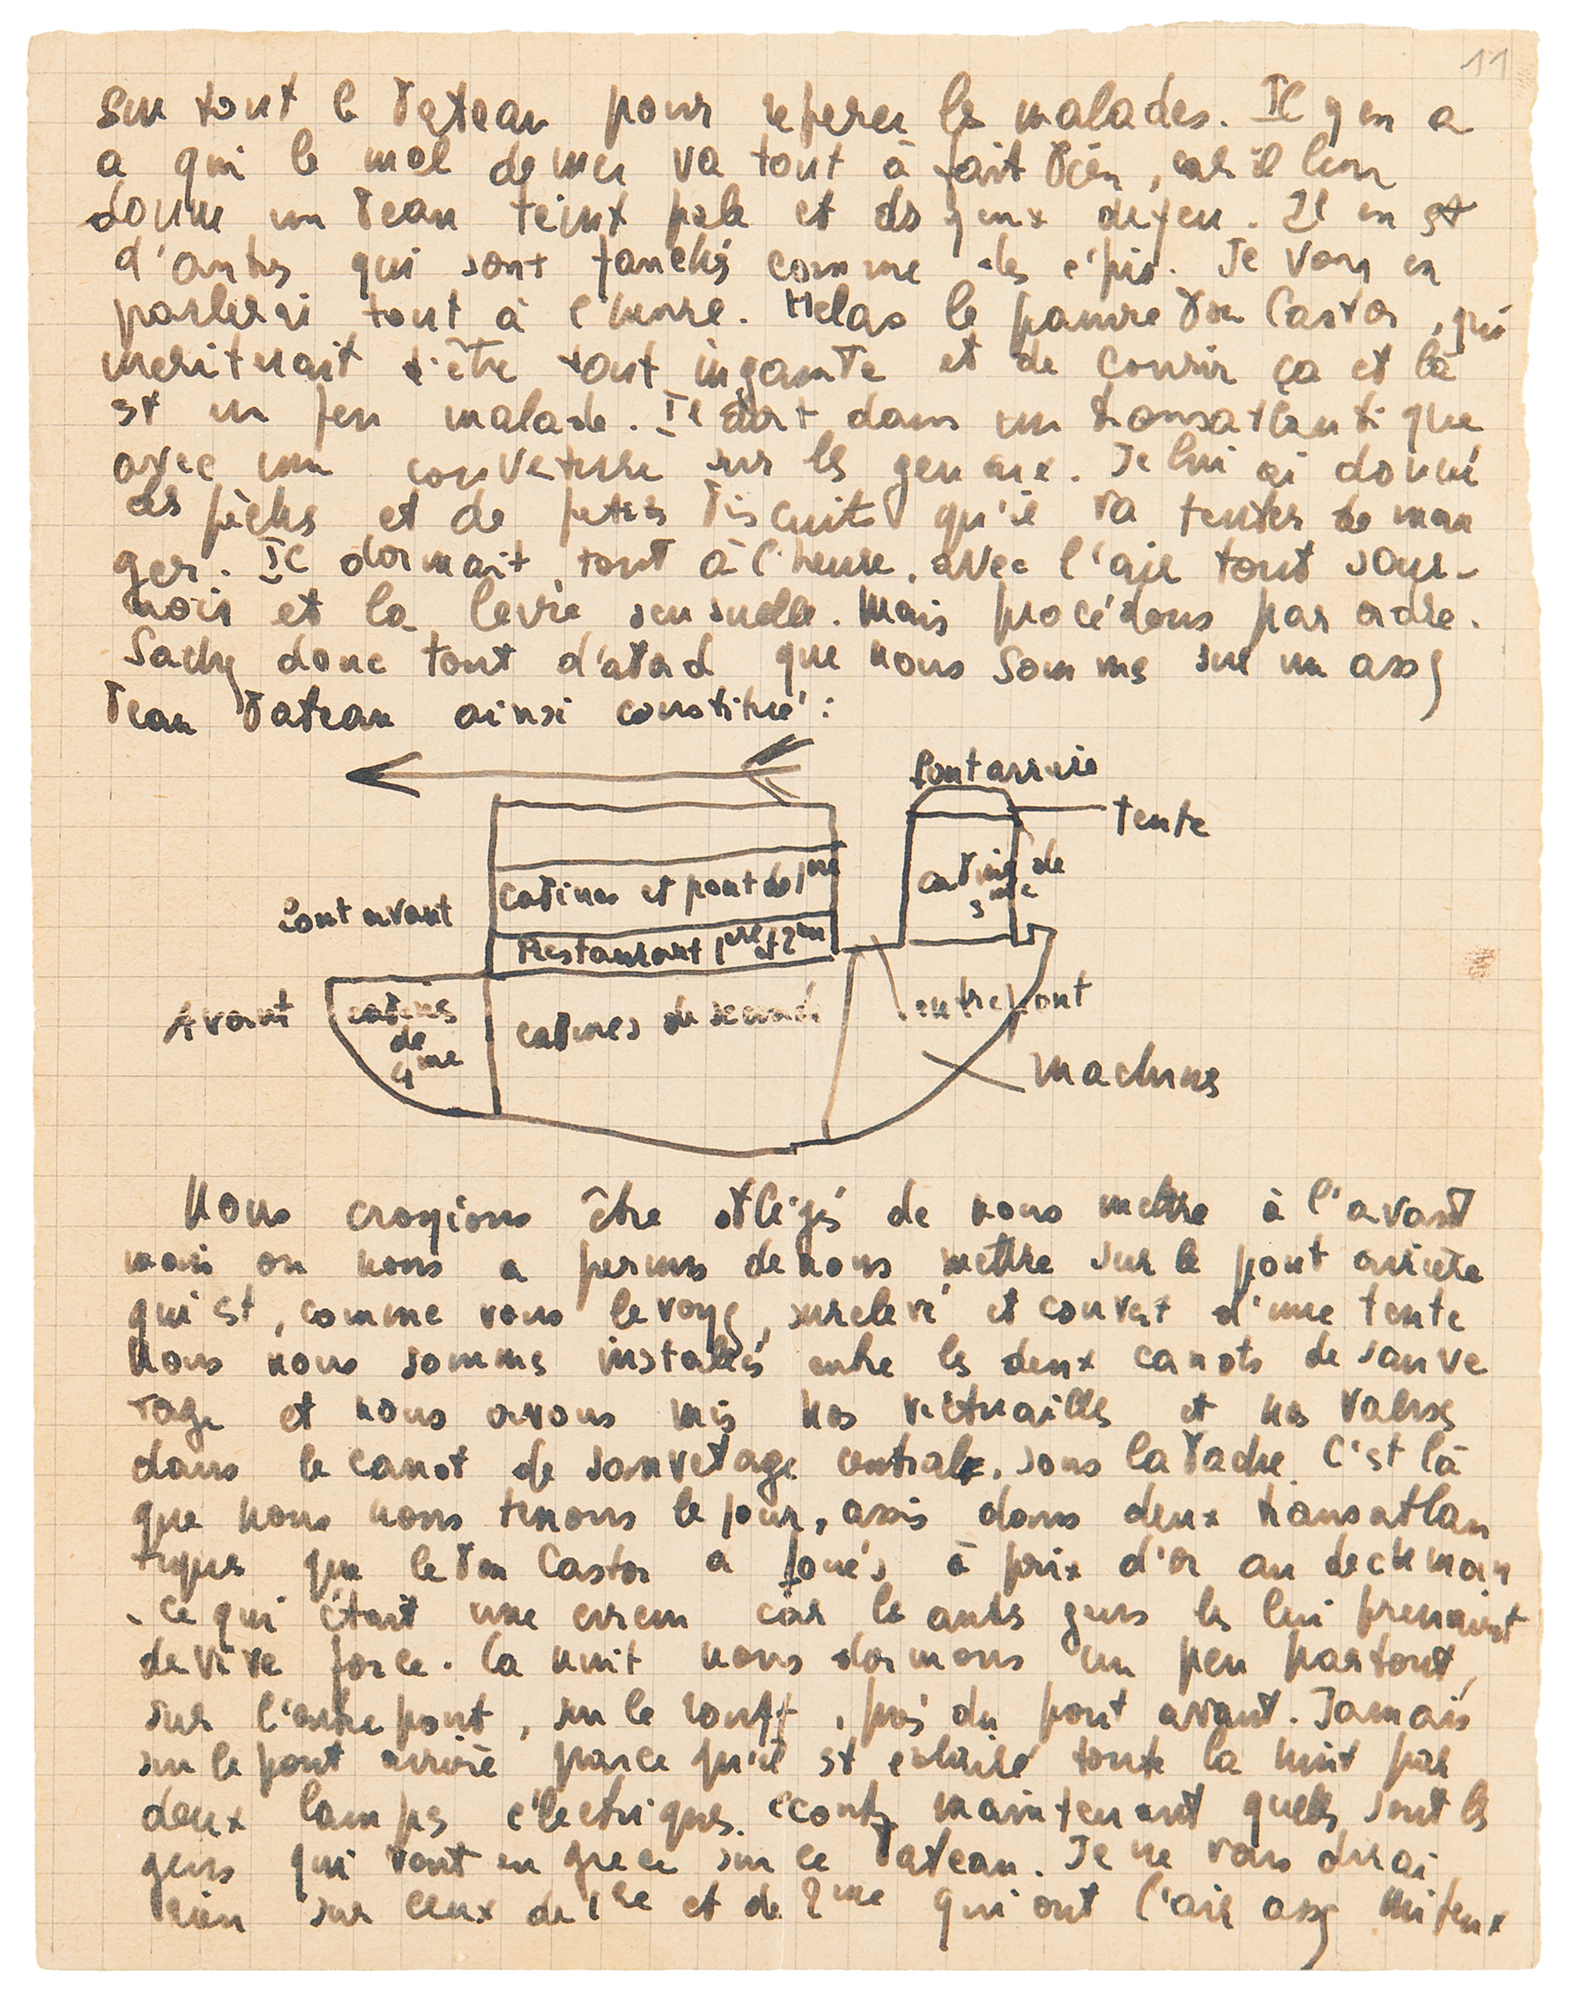 11
sur tout le bateau pour reperer les malades. Il y en a
a qui le mal de mer va tout à fait bien, car il leur
donne un beau teint pale et des yeux de feu. Il en est
d'autres qui sont fauchés comme des épis. Je vous en
parlerai tout à l'heure. Helas le pauvre bon Castor, qui
meriterait d'être tout ingambe et de courir ça et là
est un peu malade. Il dort dans un transatlantique
avec une couverture sur les genoux. Je lui ai donné
des pêches et de petits biscuits qu'il va tenter de man
ger. Il dormait, tout à l'heure, avec l'air tout sour-
nois et la levre sensuelle. Mais procédons par ordre.
Sachez donc tout d'abord que nous sommes sur un assez
beau bateau ainsi constitué :
Pont arrière
tente
cabines et pont de 1re
cabines de
3me
Pont avant
Restaurant 1ere et 2me
Avant
cabines
de
4me
cabines de seconde
entrepont
Machines
Nous croyions être obligés de nous mettre à l'avant
mais on nous a permis de nous mettre sur le pont arrière
qui est, comme vous le voyez, surelevé et couvert d'une tente
Nous nous sommes installés entre les deux canots de sauve
tage et nous avons mis nos victuailles et nos valises
dans le canot de sauvetage central, sous la bache. C'est là
que nous nous tenons le jour, assis dans deux transatlan
tiques que le bon Castor a loués à prix d'or au deckman
- ce qui était une erreur car les autres gens les lui prennent
de vive force. La nuit nous dormons un peu partout,
sur l'entrepont, sur le rouff, près du pont avant. Jamais
sur le pont arrière parce qu'il est éclairé toute la nuit par
deux lampes électriques. écoutez maintenant quels sont les
gens qui vont en grece sur ce bateau. Je ne vous dirai
rien sur ceux de 1re et de 2me qui ont l'air assez miteux